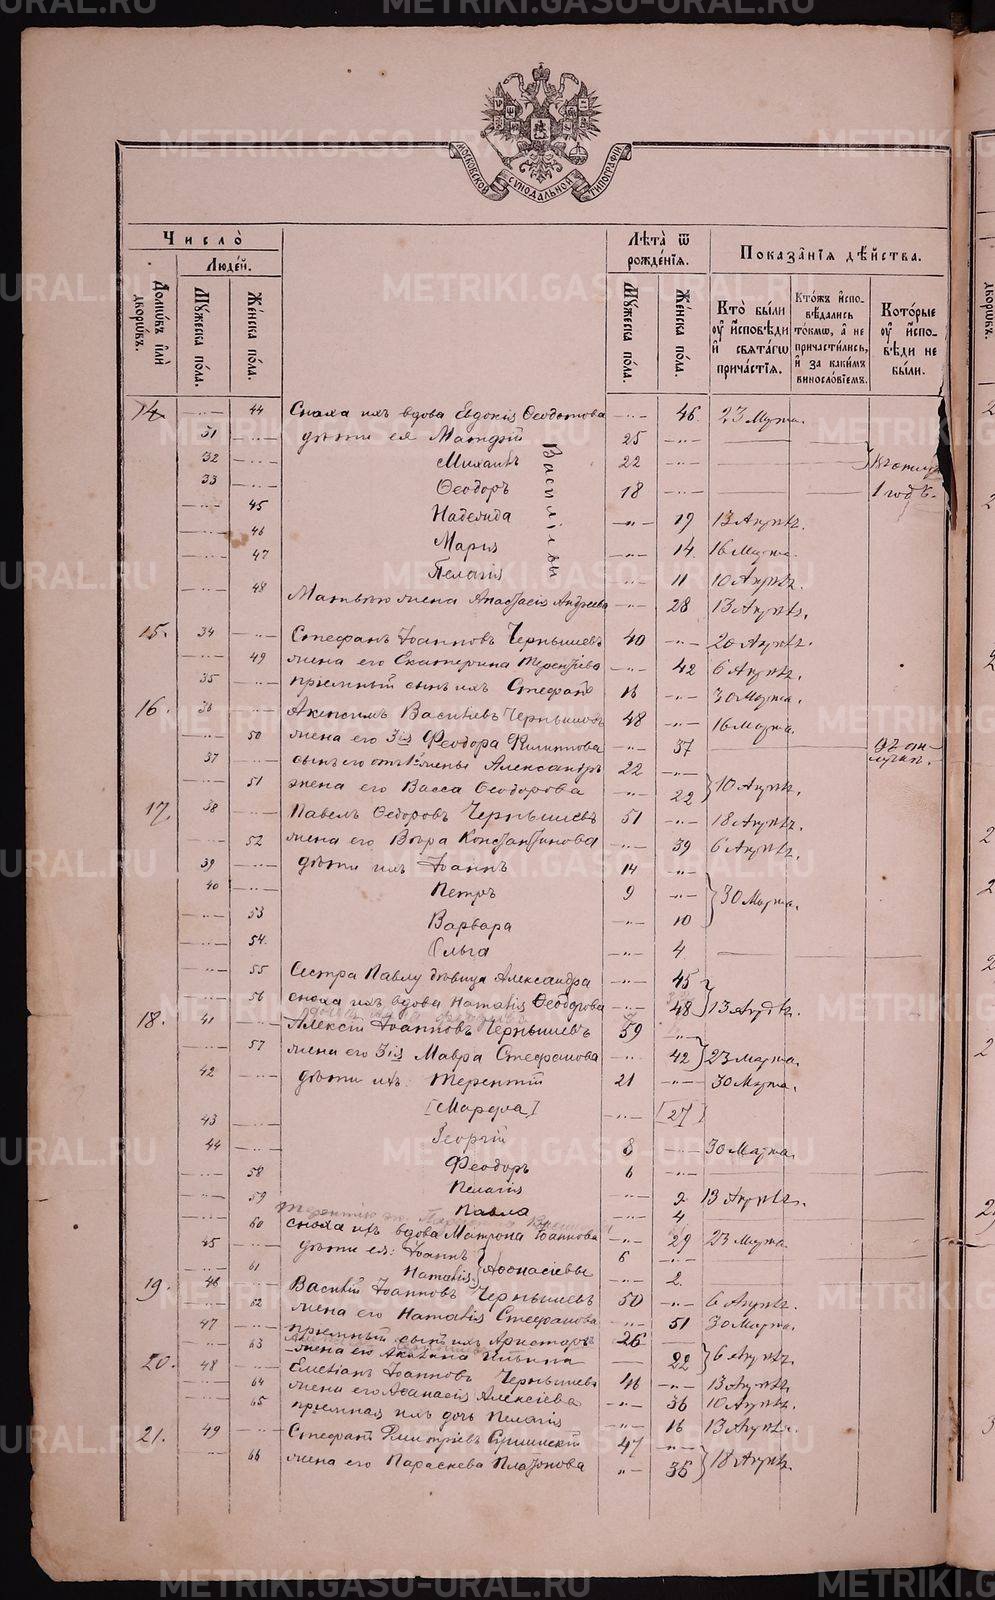 МОСКОВСКОЙ СѴНОДАЛЬНОЙ ТИПОГРАФІИ
Число̀
Людей.
Домѡвъ илѝ дворѡвъ.
Мꙋжеска по́ла.
Же́нска по́ла.
Лѣта̀ ѿ рожде́нїѧ.
Мꙋжеска по́ла.
Же́нска по́ла.
Показа̑нїѧ дѣ́йства.
Кто̀ бы́ли ᲂу҆ и҆сповѣди и҆ свѧта́гѡ прича́стїѧ.
Кто́жъ и҆спо­вѣдались то́кмѡ, а҆ не причасти́лись, и҆ за каки́мъ винослѡ́вїемъ.
Кото́рые ᲂу҆ и҆спо­вѣди не бы́ли.
14 -"- 44 Сноха ихъ вдова Евдокія Ѳеодотова -"- 46 23 Марта.
31 -"- дѣти ея Матѳій 25 -"-
32 -"- Михаилъ 22 -"-
33 -"- Ѳеодоръ 18 -"- 1 годъ.
Васильевы
-"- 45 Надежда -"- 19 13 Апрѣля.
-"- 46 Марія -"- 14 16 Марта.
-"- 47 Пелагія -"- 11 10 Апрѣля.
-"- 48 жена Анастасія Андреева -"- 28 13 Апрѣля.
15. 34 -"- Стефанъ Іоанновъ Чернышевъ 40 -"- 20 Апрѣля.
-"- 49 жена его Екатерина Терентіева -"- 42 6 Апрѣля.
35 -"- пріемный сынъ ихъ Стефанъ 16 -"- 30 Марта.
16. 36 -"- Василіевъ Чернышевъ 48 -"- 16 Марта.
-"- 50 жена его 3ія Ѳеодора Филиппова -"- 37
37 -"- сынъ его отъ 1й жены Александръ 22 -"-
-"- 51 жена его Васса Ѳеодорова -"- 22 10 Апрѣля.
17. 38 -"- Павелъ Ѳедоровъ Чернышевъ 51 -"- 18 Апрѣля.
-"- 52 жена его Вѣра Константинова -"- 39 6 Апрѣля.
39 -"- дѣти ихъ Іоаннъ 14 -"-
40 -"- Петръ 9 -"- 30 Марта.
-"- 53 Варвара -"- 10
-"- 54. Ольга -"- 4
-"- 55 Сестра Павлу дѣвица Александра -"- 45
-"- 56 сноха ихъ вдова Наталія Ѳеодорова -"- 48 13 Апрѣля.
18. 41 -"- Алексій Іоанновъ Чернышевъ 59 -"-
-"- 57 жена его 3ія Мавра Стефанова -"- 42 23 Марта.
42 -"- дѣти ихъ: Терентій 21 -"- 30 Марта.
-"- [27]
43 -"- Георгій 8 -"- 30 Марта.
44 -"- Ѳеодоръ 6 -"-
-"- 58 Пелагія -"- 9 13 Апрѣля.
-"- 59 Павла -"- 4
-"- 60 сноха ихъ вдова Матрона Іоаннова -"- 29 23 Марта.
45 -"- дѣти ея: Іоаннъ 6 -"-
-"- 61 Наталія } Аѳонасіевы -"- 2
19. 46 -"- Василій Іоанновъ Чернышевъ 50 -"- 6 Апрѣля.
-"- 62 жена его Наталія Стефанова -"- 51 30 Марта.
47 -"- пріемный сынъ ихъ Аристархъ 26
-"- 63 жена его Акилина Ильина 22 6 Апрѣля.
20. 48 -"- Емеліанъ Іоанновъ Чернышевъ 46 -"- 13 Апрѣля.
-"- 64 жена его Аѳанасія Алексіева -"- 36 10 Апрѣля.
-"- 65 пріемная ихъ дочь Пелагія -"- 16 13 Апрѣля.
21. 49 -"- Стефанъ Димитріевъ 47 -"-
-"- 66 жена его Параскева Платонова -"- 35 18 Апрѣля.
METRIKI.GASO-URAL.RU